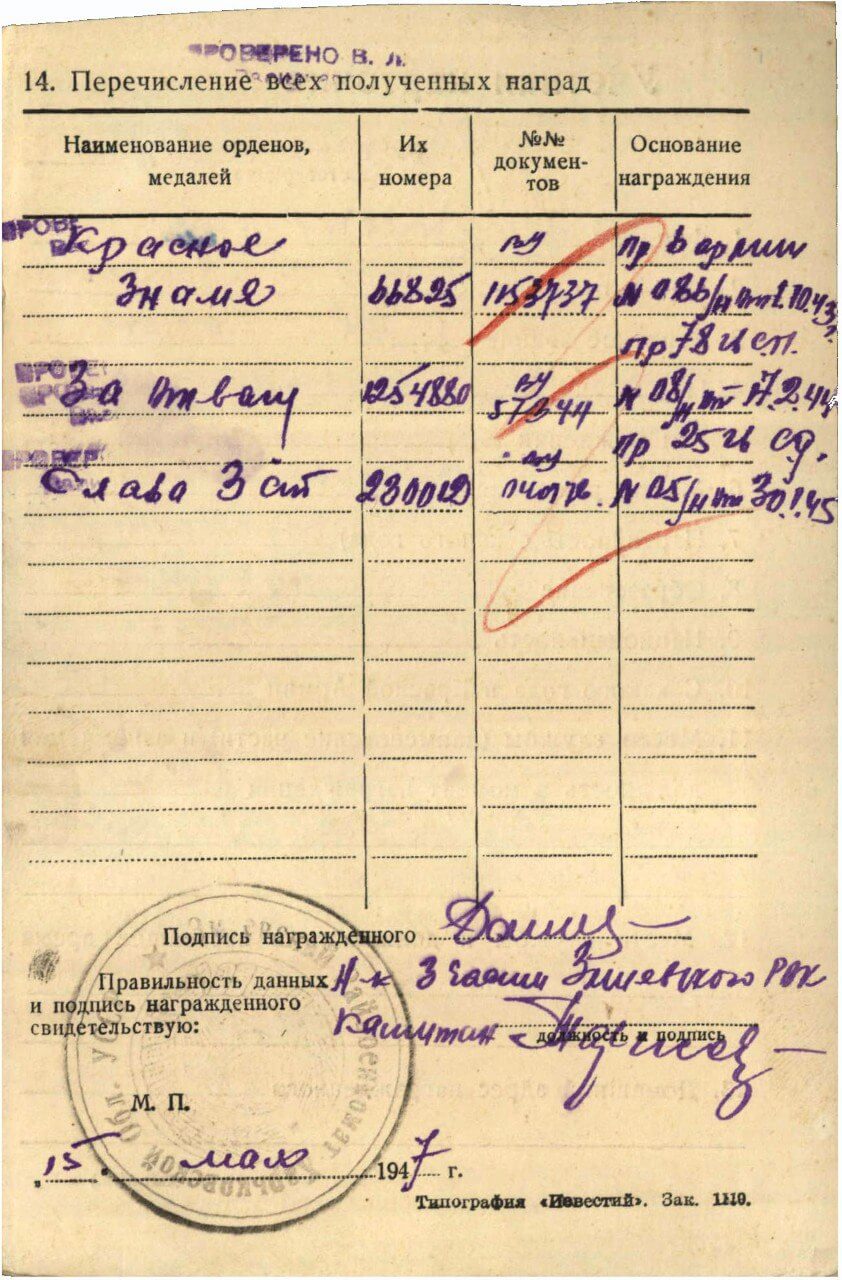 ПРОВЕРЕНО В. Л.
14. Перечисление всех полученных наград
Наименование орденов, медалей
Их номера
№№ документов
Основание награждения
Красное пу Пр 6 армии
Знамя 66825 1153737 N 086/н от 1.10.43г.
Пр 78 гв сп.
За отвагу 1254880 пу 57344 N 08/н от 17.2.44
Пр 25 гв сд.
Слава 3 ст 230012 пу N 05/н от 30.1.45
Подпись награжденного
Правильность данных Н-к 3 части Змиевского РВК
и подпись награжденного
свидетельствую: Капитан
должность и подпись
М. П.
„15" мая 1947 г.
Типография «Известий». Зак. 1110.